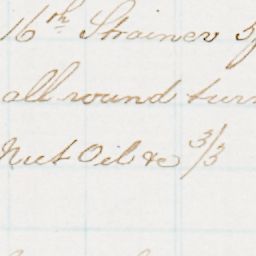 16th Strainer 5/
all round turn
Nut Oil &c 3/3